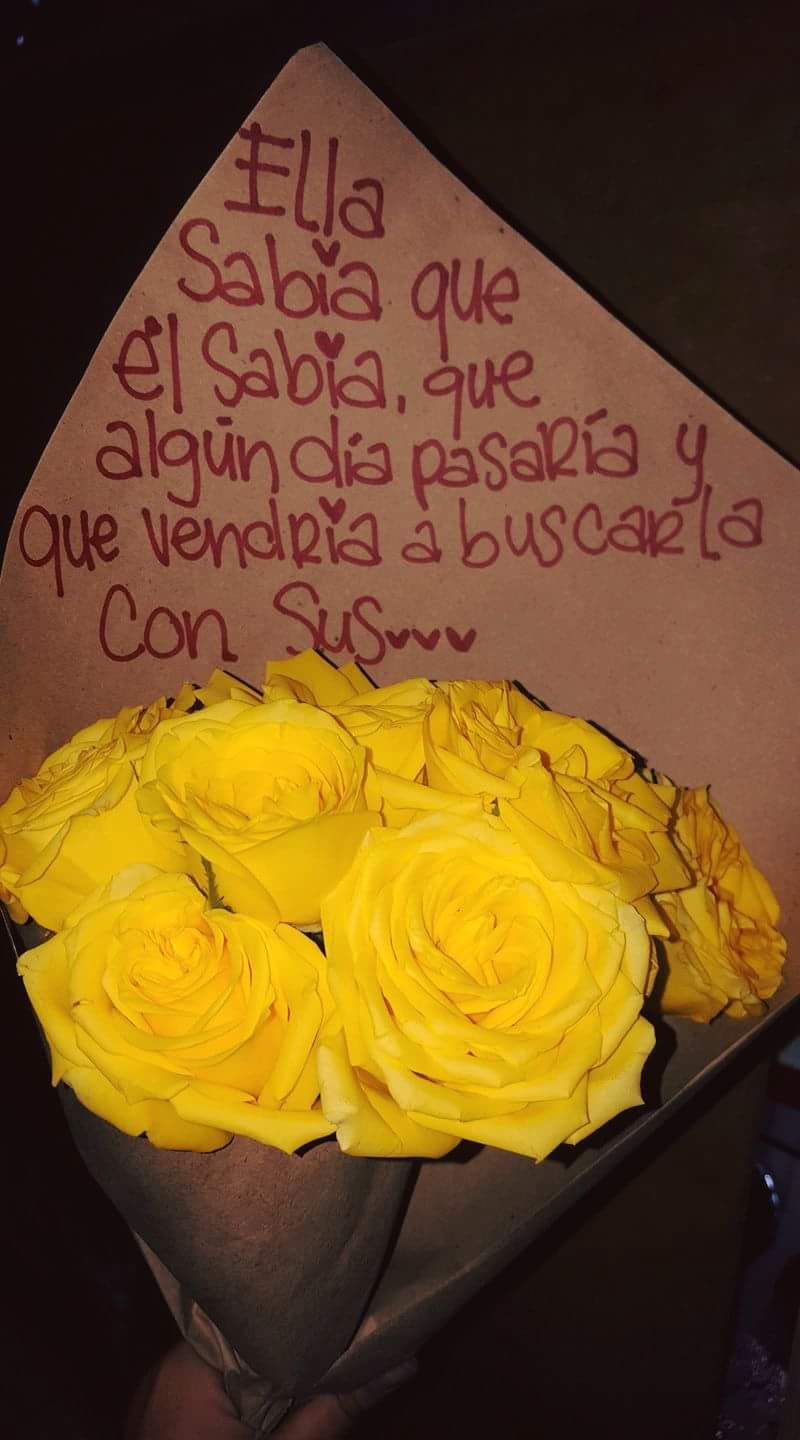 Ella
Sabia que
él Sabia, que
algún día pasaría y
que vendria a buscarla
Con Sus